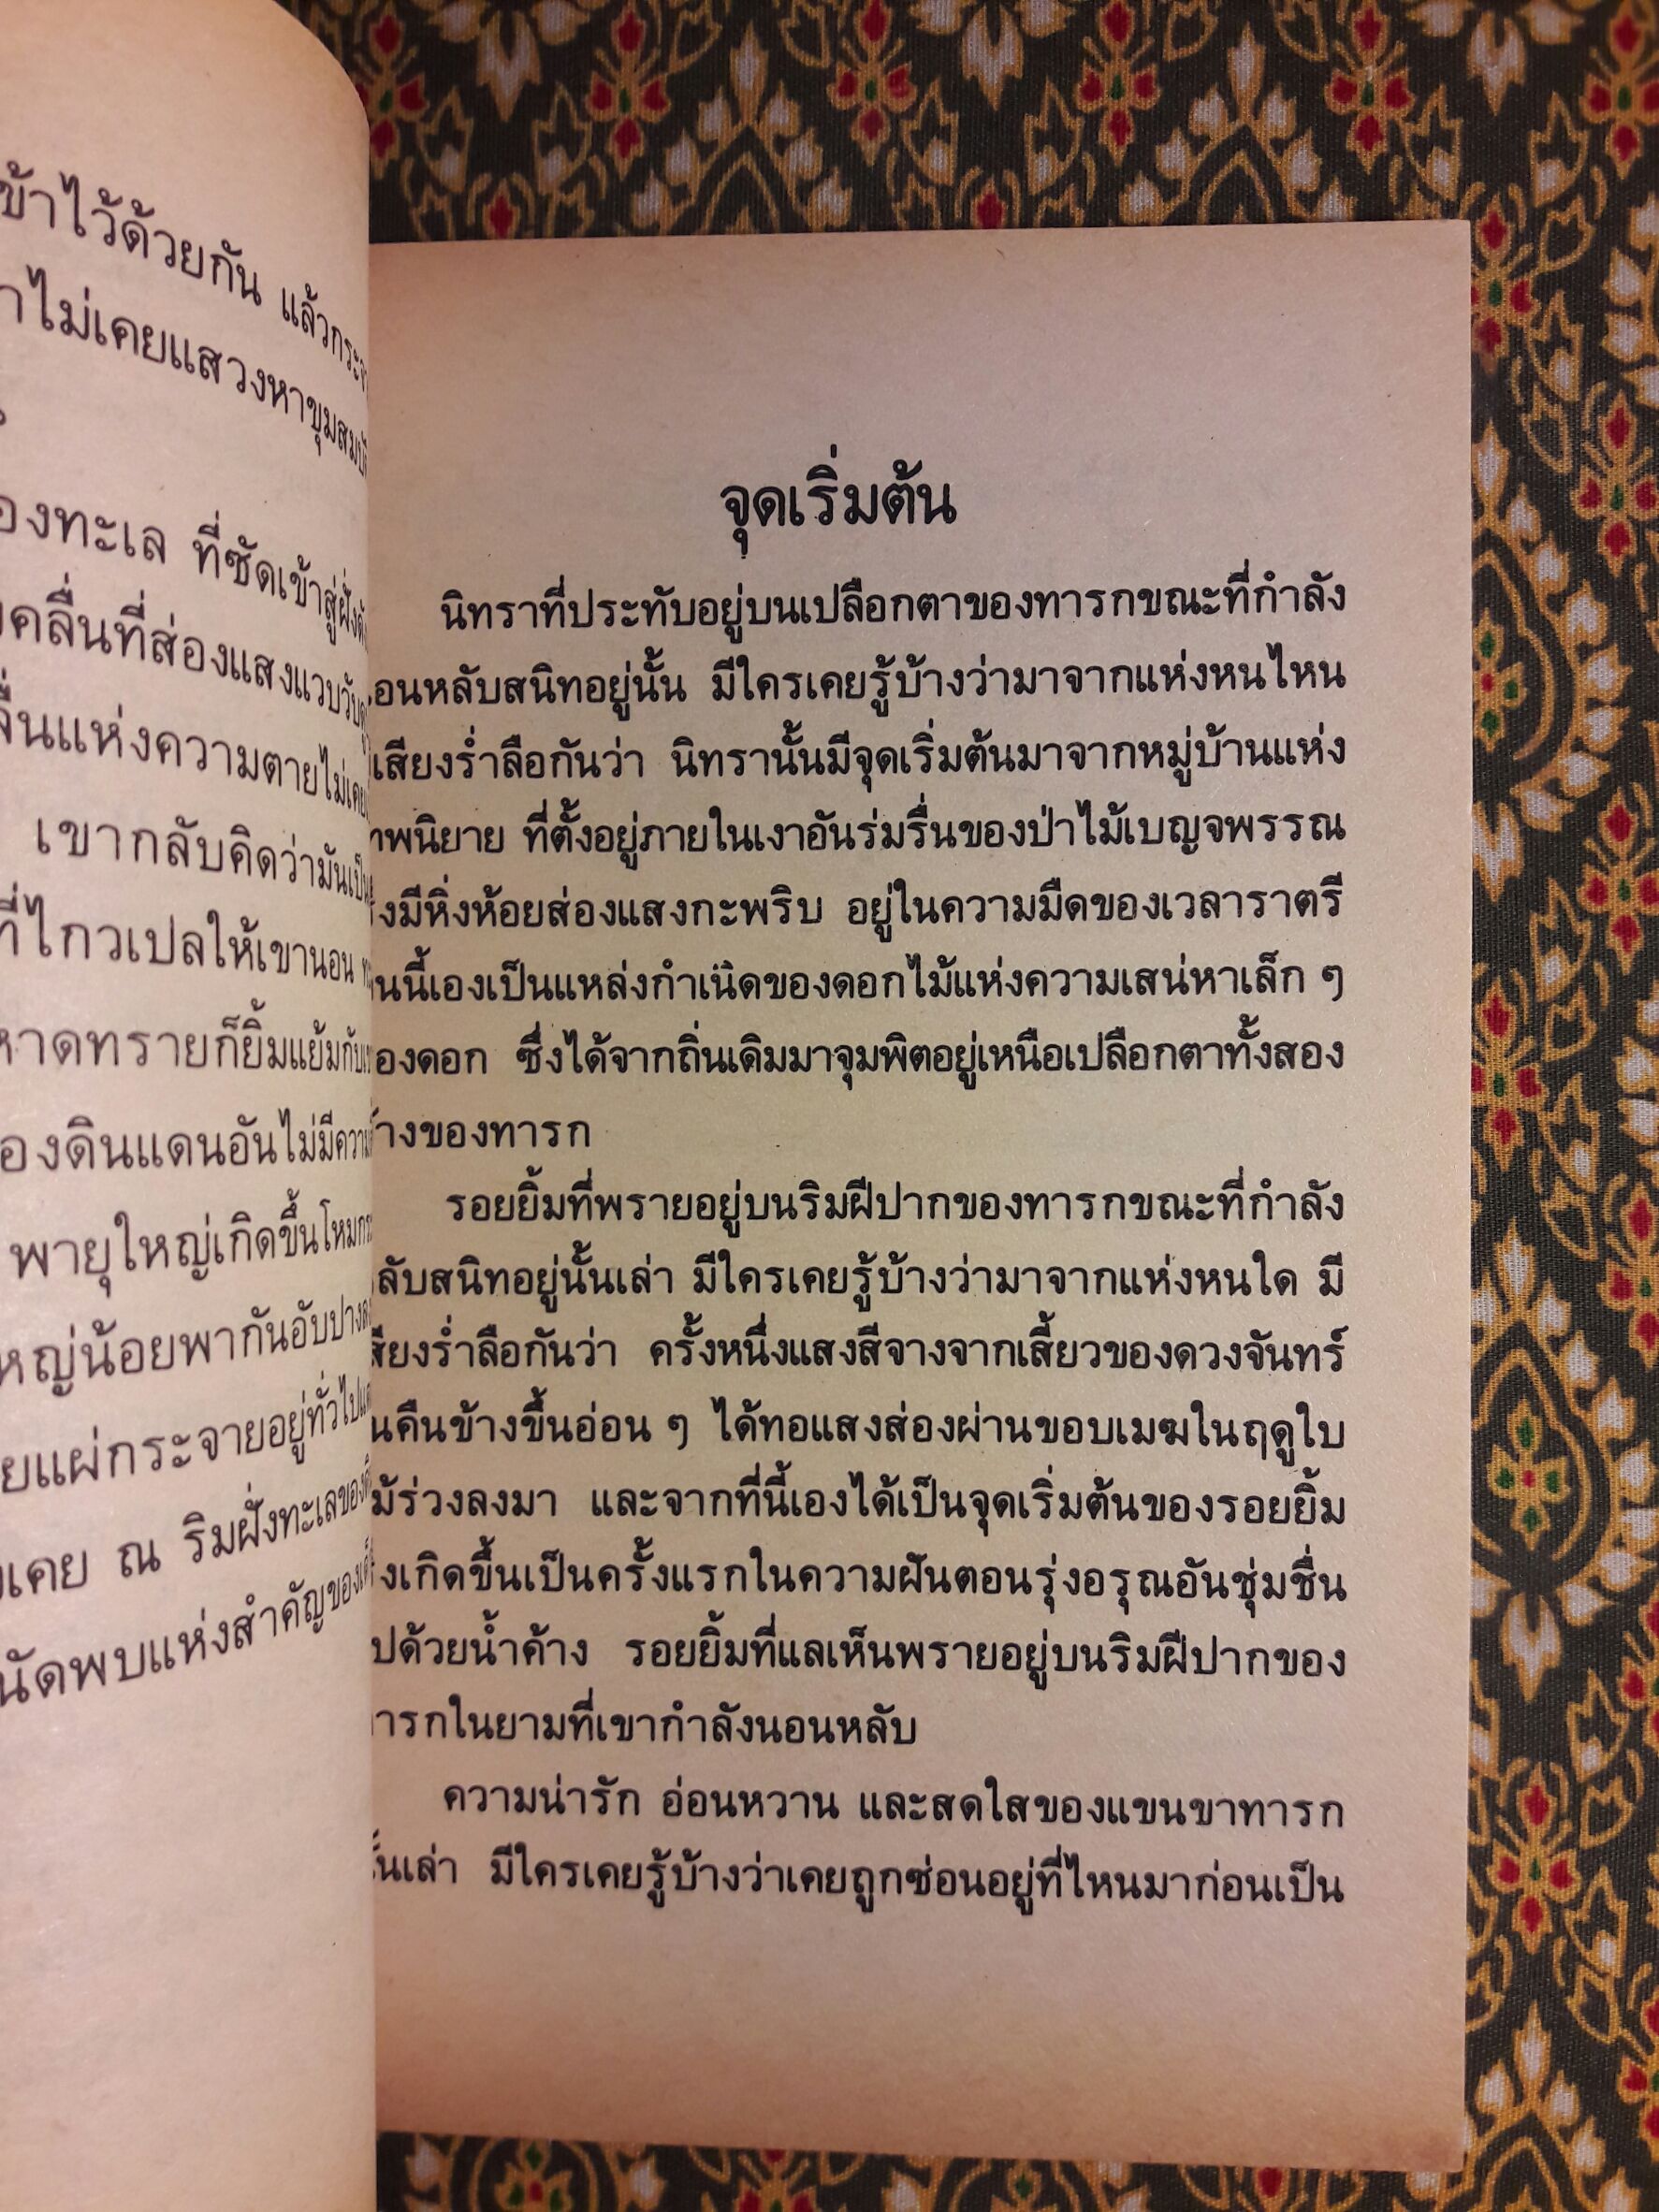 ข้าไว้ด้วยกัน แล้ว
ไม่เคยแสวงหาขุม
ของทะเล ที่ซัดเข้าสู่ฝั่ง
คลื่นที่ส่องแสงแวบวับ
แห่งความตายไม่
เขากลับคิดว่ามัน
ที่ไกวเปลให้เขานอน
หาดทรายก็ยิ้มแย้มกับ
ของดินแดนอันไม่มี
พายุใหญ่เกิดขึ้นโหม
ใหญ่น้อยพากันอับปาง
แผ่กระจายอยู่ทั่วไป
เคย ณ ริมฝั่งทะเลของ
นัดพบแห่งสำคัญของ
จุดเริ่มต้น
นิทราที่ประทับอยู่บนเปลือกตาของทารกขณะที่กำลัง
นอนหลับสนิทอยู่นั้น มีใครเคยรู้บ้างว่ามาจากแห่งหนไหน
เสียงร่ำลือกันว่า นิทรานั้นมีจุดเริ่มต้นมาจากหมู่บ้านแห่ง
เทพนิยาย ที่ตั้งอยู่ภายในเงาอันร่มรื่นของป่าไม้เบญจพรรณ
ซึ่งมีหิ่งห้อยส่องแสงกะพริบ อยู่ในความมืดของเวลาราตรี
นี้เองเป็นแหล่งกำเนิดของดอกไม้แห่งความเสน่หาเล็ก ๆ
สองดอก ซึ่งได้จากถิ่นเดิมมาจุมพิตอยู่เหนือเปลือกตาทั้งสอง
ข้างของทารก
รอยยิ้มที่พรายอยู่บนริมฝีปากของทารกขณะที่กำลัง
หลับสนิทอยู่นั้นเล่า มีใครเคยรู้บ้างว่ามาจากแห่งหนใด มี
เสียงร่ำลือกันว่า ครั้งหนึ่งแสงสีจางจากเสี้ยวของดวงจันทร์
ในคืนข้างขึ้นอ่อน ๆ ได้ทอแสงส่องผ่านขอบเมฆในฤดูใบ
ไม้ร่วงลงมา และจากที่นี้เองได้เป็นจุดเริ่มต้นของรอยยิ้ม
ซึ่งเกิดขึ้นเป็นครั้งแรกในความฝันตอนรุ่งอรุณอันชุ่มชื่น
ไปด้วยน้ำค้าง รอยยิ้มที่แลเห็นพรายอยู่บนริมฝีปากของ
ทารกในยามที่เขากำลังนอนหลับ
ความน่ารัก อ่อนหวาน และสดใสของแขนขาทารก
นั้นเล่า มีใครเคยรู้บ้างว่าเคยถูกซ่อนอยู่ที่ไหนมาก่อนเป็น